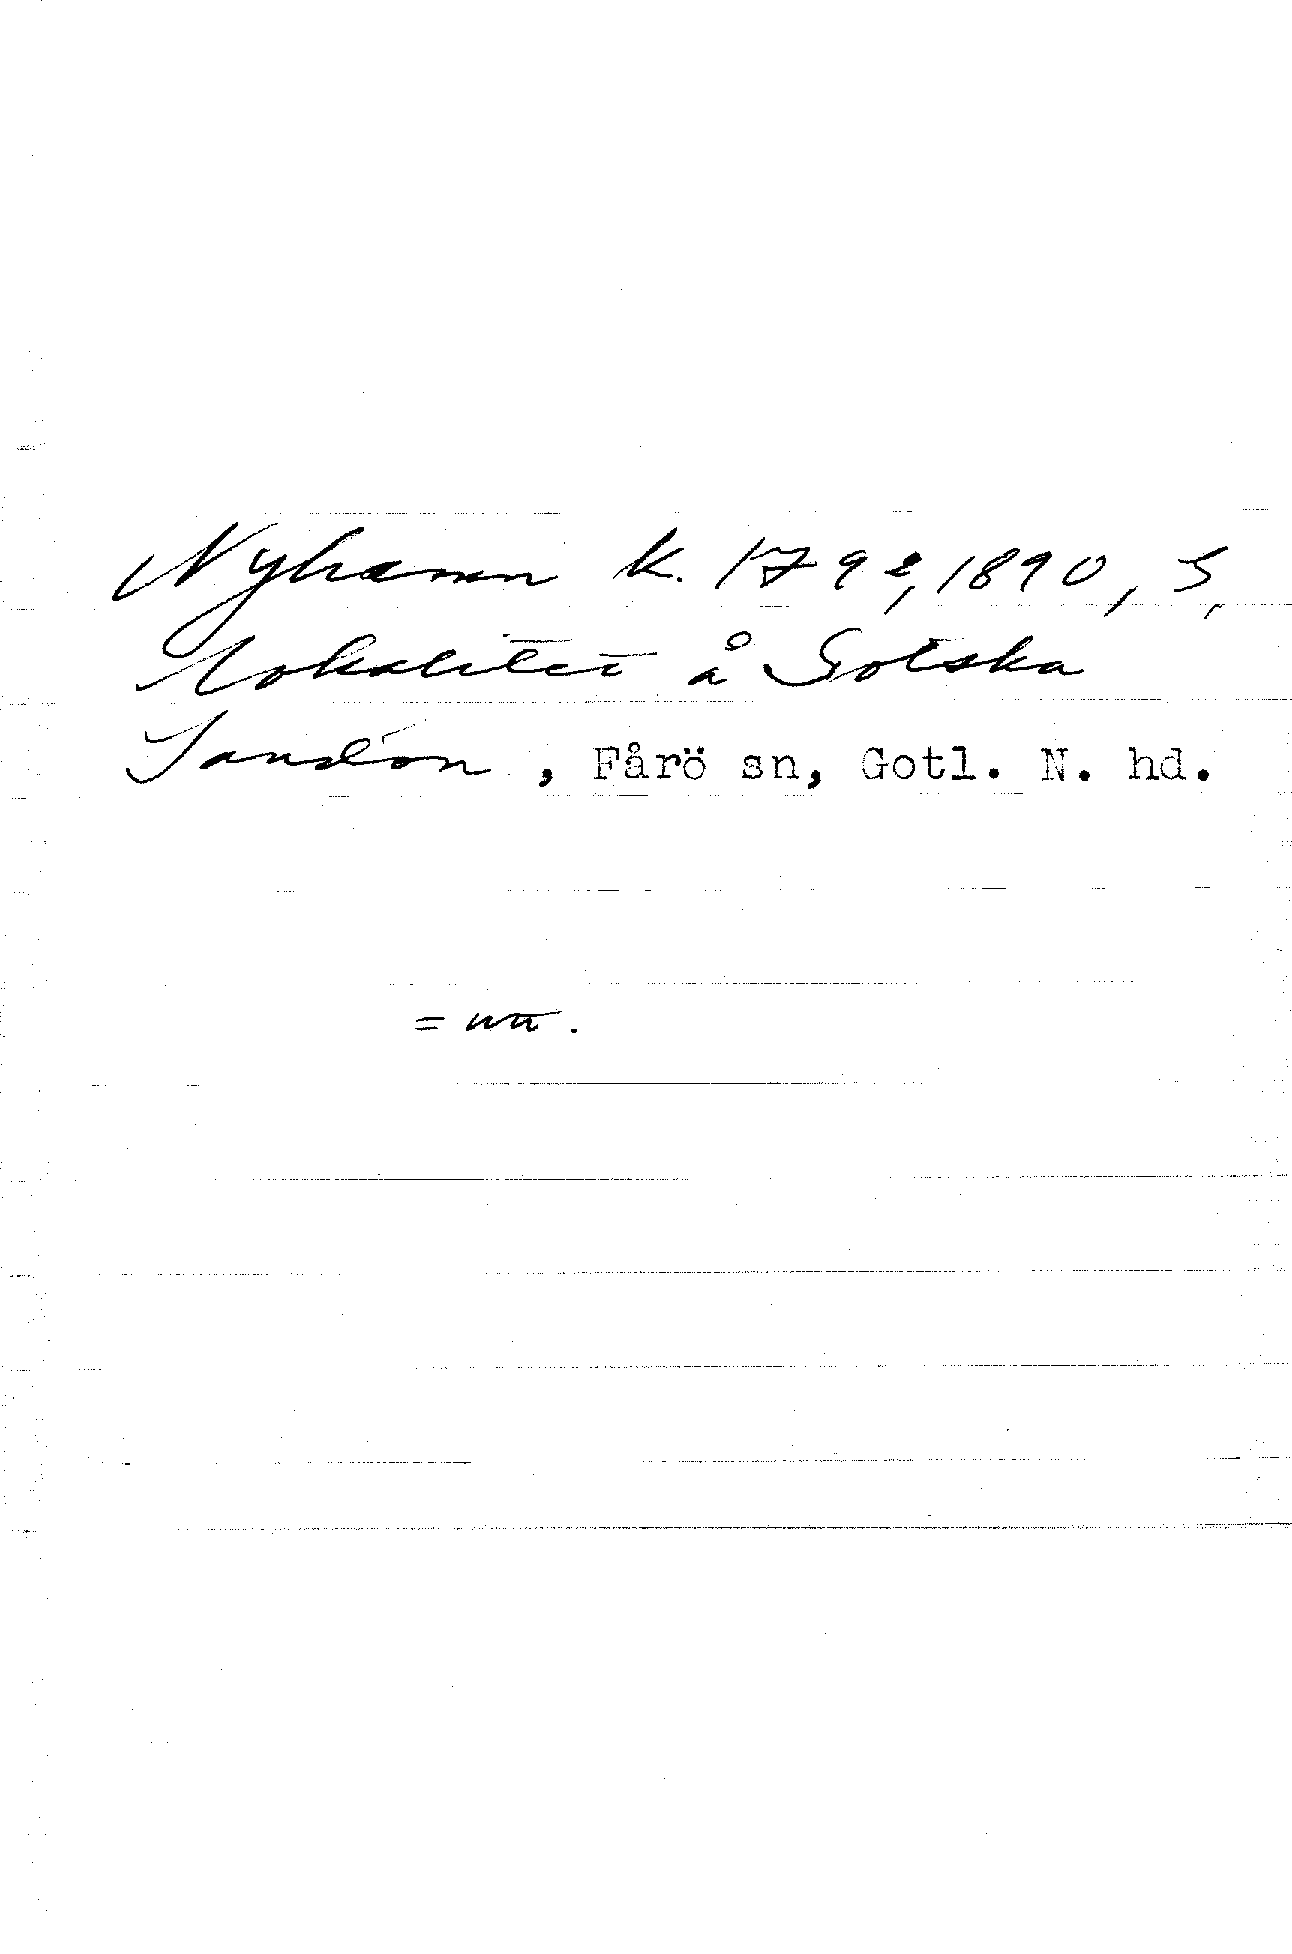 Nyhamn k. 1792, 1890, S,
lokalitet å Gotska
Sandön, Fårö sn, Gotl. N. hd.
= nu.